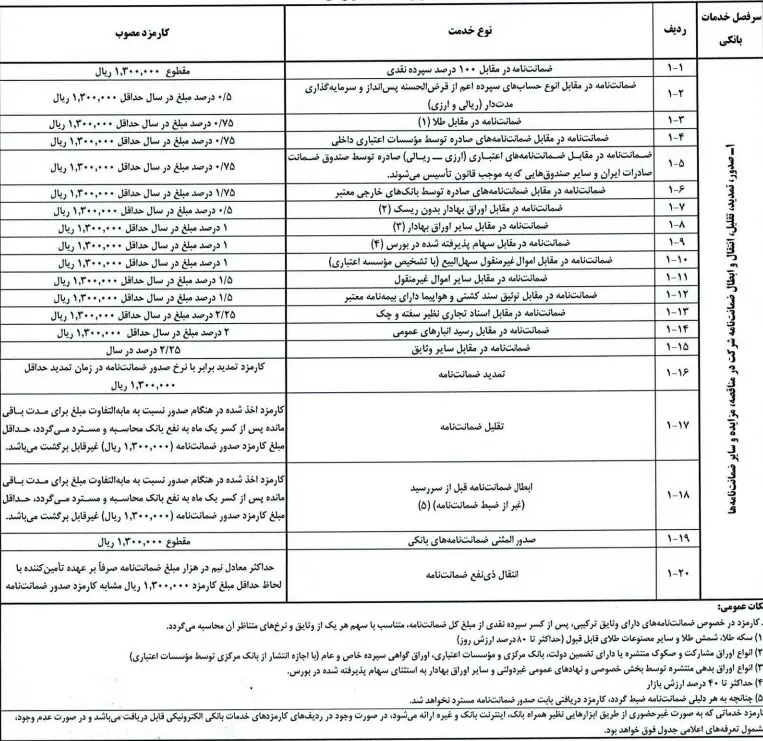 سرفصل خدمات بانکی
ردیف
نوع خدمت
کارمزد مصوب
۱ـ صدور، تمدید، تقلیل، انتقال و ابطال ضمانت‌نامه شرکت در مناقصه، مزایده و سایر ضمانت‌نامه‌ها
۱-۱ ضمانت‌نامه در مقابل ۱۰۰ درصد سپرده نقدی مقطوع ۱,۳۰۰,۰۰۰ ریال
۱-۲ ضمانت‌نامه در مقابل انوع حساب‌های سپرده اعم از قرض‌الحسنه پس‌انداز و سرمایه‌گذاری
مدت‌دار (ریالی و ارزی) ۰/۵ درصد مبلغ در سال حداقل ۱,۳۰۰,۰۰۰ ریال
۱-۳ ضمانت‌نامه در مقابل طلا (۱) ۰/۷۵ درصد مبلغ در سال حداقل ۱,۳۰۰,۰۰۰ ریال
۱-۴ ضمانت‌نامه در مقابل ضمانت‌نامه‌های صادره توسط مؤسسات اعتباری داخلی ۰/۷۵ درصد مبلغ در سال حداقل ۱,۳۰۰,۰۰۰ ریال
۱-۵ ضمانت‌نامه در مقابل ضمانت‌نامه‌های اعتباری (ارزی ـ ریالی) صادره توسط صندوق ضمانت
صادرات ایران و سایر صندوق‌هایی که به موجب قانون تأسیس می‌شوند. ۰/۷۵ درصد مبلغ در سال حداقل ۱,۳۰۰,۰۰۰ ریال
۱-۶ ضمانت‌نامه در مقابل ضمانت‌نامه‌های صادره توسط بانک‌های خارجی معتبر ۱/۷۵ درصد مبلغ در سال حداقل ۱,۳۰۰,۰۰۰ ریال
۱-۷ ضمانت‌نامه در مقابل اوراق بهادار بدون ریسک (۲) ۰/۵ درصد مبلغ در سال حداقل ۱,۳۰۰,۰۰۰ ریال
۱-۸ ضمانت‌نامه در مقابل سایر اوراق بهادار (۳) ۱ درصد مبلغ در سال حداقل ۱,۳۰۰,۰۰۰ ریال
۱-۹ ضمانت‌نامه در مقابل سهام پذیرفته شده در بورس (۴) ۱ درصد مبلغ در سال حداقل ۱,۳۰۰,۰۰۰ ریال
۱-۱۰ ضمانت‌نامه در مقابل اموال غیرمنقول سهل‌البیع (با تشخیص مؤسسه اعتباری) ۱ درصد مبلغ در سال حداقل ۱,۳۰۰,۰۰۰ ریال
۱-۱۱ ضمانت‌نامه در مقابل سایر اموال غیرمنقول ۱/۵ درصد مبلغ در سال حداقل ۱,۳۰۰,۰۰۰ ریال
۱-۱۲ ضمانت‌نامه در مقابل توثیق سند کشتی و هواپیما دارای بیمه‌نامه معتبر ۱/۵ درصد مبلغ در سال حداقل ۱,۳۰۰,۰۰۰ ریال
۱-۱۳ ضمانت‌نامه در مقابل اسناد تجاری نظیر سفته و چک ۲/۲۵ درصد مبلغ در سال حداقل ۱,۳۰۰,۰۰۰ ریال
۱-۱۴ ضمانت‌نامه در مقابل رسید انبارهای عمومی ۲ درصد مبلغ در سال حداقل ۱,۳۰۰,۰۰۰ ریال
۱-۱۵ ضمانت‌نامه در مقابل سایر وثایق ۲/۲۵ درصد در سال
۱-۱۶ تمدید ضمانت‌نامه کارمزد تمدید برابر با نرخ صدور ضمانت‌نامه در زمان تمدید حداقل
۱,۳۰۰,۰۰۰ ریال
۱-۱۷ تقلیل ضمانت‌نامه کارمزد اخذ شده در هنگام صدور نسبت به مابه‌التفاوت مبلغ برای مدت باقی
مانده پس از کسر یک ماه به نفع بانک محاسبه و مسترد می‌گردد، حداقل
مبلغ کارمزد صدور ضمانت‌نامه (۱,۳۰۰,۰۰۰ ریال) غیرقابل برگشت می‌باشد.
۱-۱۸ ابطال ضمانت‌نامه قبل از سررسید
(غیر از ضبط ضمانت‌نامه) (۵) کارمزد اخذ شده در هنگام صدور نسبت به مابه‌التفاوت مبلغ برای مدت باقی
مانده پس از کسر یک ماه به نفع بانک محاسبه و مسترد می‌گردد، حداقل
مبلغ کارمزد صدور ضمانت‌نامه (۱,۳۰۰,۰۰۰ ریال) غیرقابل برگشت می‌باشد.
۱-۱۹ صدور المثنی ضمانت‌نامه‌های بانکی مقطوع ۱,۳۰۰,۰۰۰ ریال
۱-۲۰ انتقال ذی‌نفع ضمانت‌نامه حداکثر معادل نیم در هزار مبلغ ضمانت‌نامه صرفاً بر عهده تأمین‌کننده با
لحاظ حداقل مبلغ کارمزد ۱,۳۰۰,۰۰۰ ریال مشابه کارمزد صدور ضمانت‌نامه
کات عمومی:
کارمزد در خصوص ضمانت‌نامه‌های دارای وثایق ترکیبی، پس از کسر سپرده نقدی از مبلغ کل ضمانت‌نامه، متناسب با سهم هر یک از وثایق و نرخ‌های متناظر آن محاسبه می‌گردد.
۱) سکه طلا، شمش طلا و سایر مصنوعات طلای قابل قبول (حداکثر تا ۸۰درصد ارزش روز)
۲) انواع اوراق مشارکت و صکوک منتشره یا دارای تضمین دولت، بانک مرکزی و مؤسسات اعتباری، اوراق گواهی سپرده خاص و عام (با اجازه انتشار از بانک مرکزی توسط مؤسسات اعتباری)
۳) انواع اوراق بدهی منتشره توسط بخش خصوصی و نهادهای عمومی غیردولتی و سایر اوراق بهادار به استثنای سهام پذیرفته شده در بورس.
۴) حداکثر تا ۴۰ درصد ارزش بازار
۵) چنانچه به هر دلیلی ضمانت‌نامه ضبط گردد، کارمزد دریافتی بابت صدور ضمانت‌نامه مسترد نخواهد شد.
کارمزد خدماتی که به صورت غیرحضوری از طریق ابزارهایی نظیر همراه بانک، اینترنت بانک و غیره ارائه می‌شود، در صورت وجود در ردیف‌های کارمزدهای خدمات بانکی الکترونیکی قابل دریافت می‌باشد و در صورت عدم وجود،
شمول تعرفه‌های اعلامی جدول فوق خواهد بود.